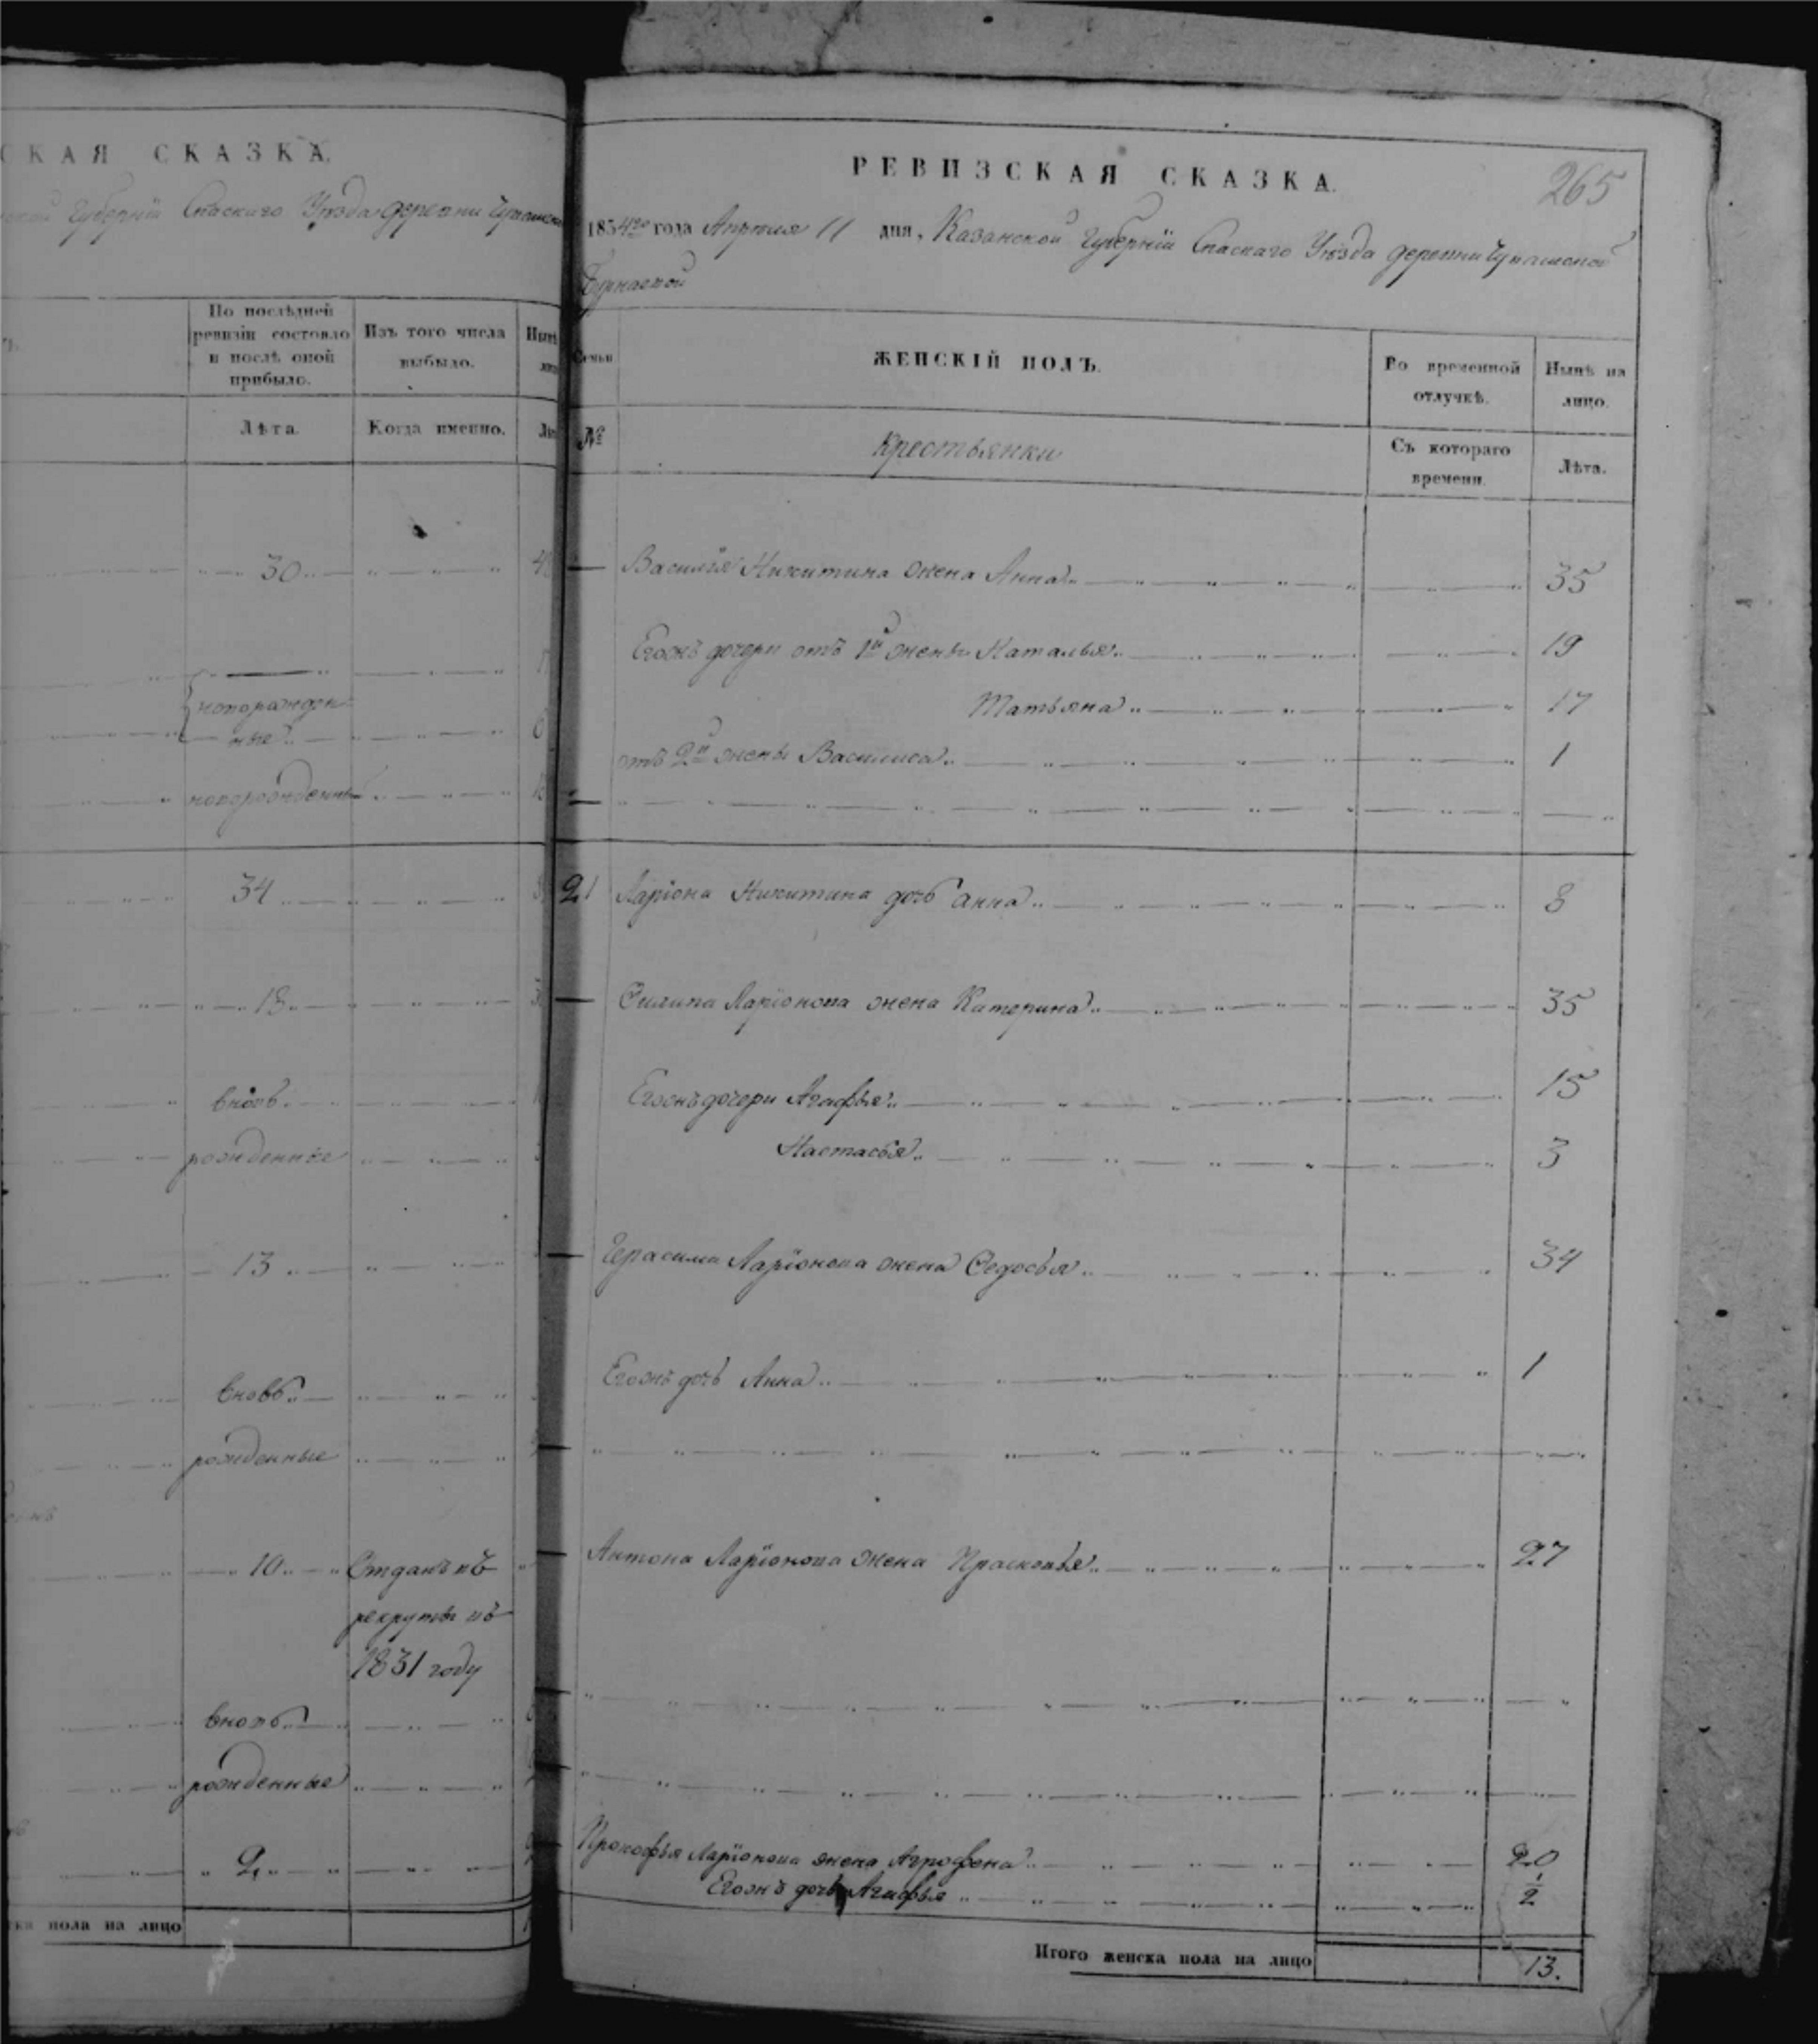 СКАЯ СКАЗКА.
Губерніи Спаскаго Уѣзда деревни
По послѣдней
ревизіи состояло
и послѣ оной
прибыло.
Изъ того числа
выбыло.
Лѣта.
Когда именно.
30
новорожден
ные
новорожденный
34
18
вновь
рожденные
13
вновь
рожденные
10
Отданъ въ
рекруты въ
1831 году
вновь
рожденные
2
пола на лицо
РЕВИЗСКАЯ СКАЗКА.
265
1834го года Апреля 11 дня, Казанской Губерніи Спаскаго Уѣзда деревни Чувашской
Бурнаевой
Семьи
ЖЕНСКІЙ ПОЛЪ.
Во временной
отлучкѣ.
Нынѣ на
лицо.
№
Крестьянки
Съ котораго
времени.
Лѣта.
Василья Никитина жена Анна 35
Егожъ дочери отъ 1й жены Наталья 19
Татьяна 17
отъ 2й жены Василиса 1
21 Ларіона Никитина дочь Анна 8
Филипа Ларіонова жена Катерина 35
Егожъ дочери Агафья 15
Настасья 3
Герасима Ларіонова жена Федосья 34
Егожъ дочь Анна 1
Антона Ларіонова жена Прасковья 27
Прокофья Ларіонова жена Аграфена 20
Егожъ дочь Агафья 1/2
Итого женска пола на лицо 13.